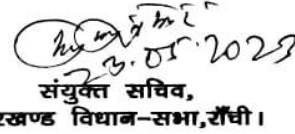 23.05.2023
संयुक्त सचिव,
रखण्ड विधान-सभा,राँची।